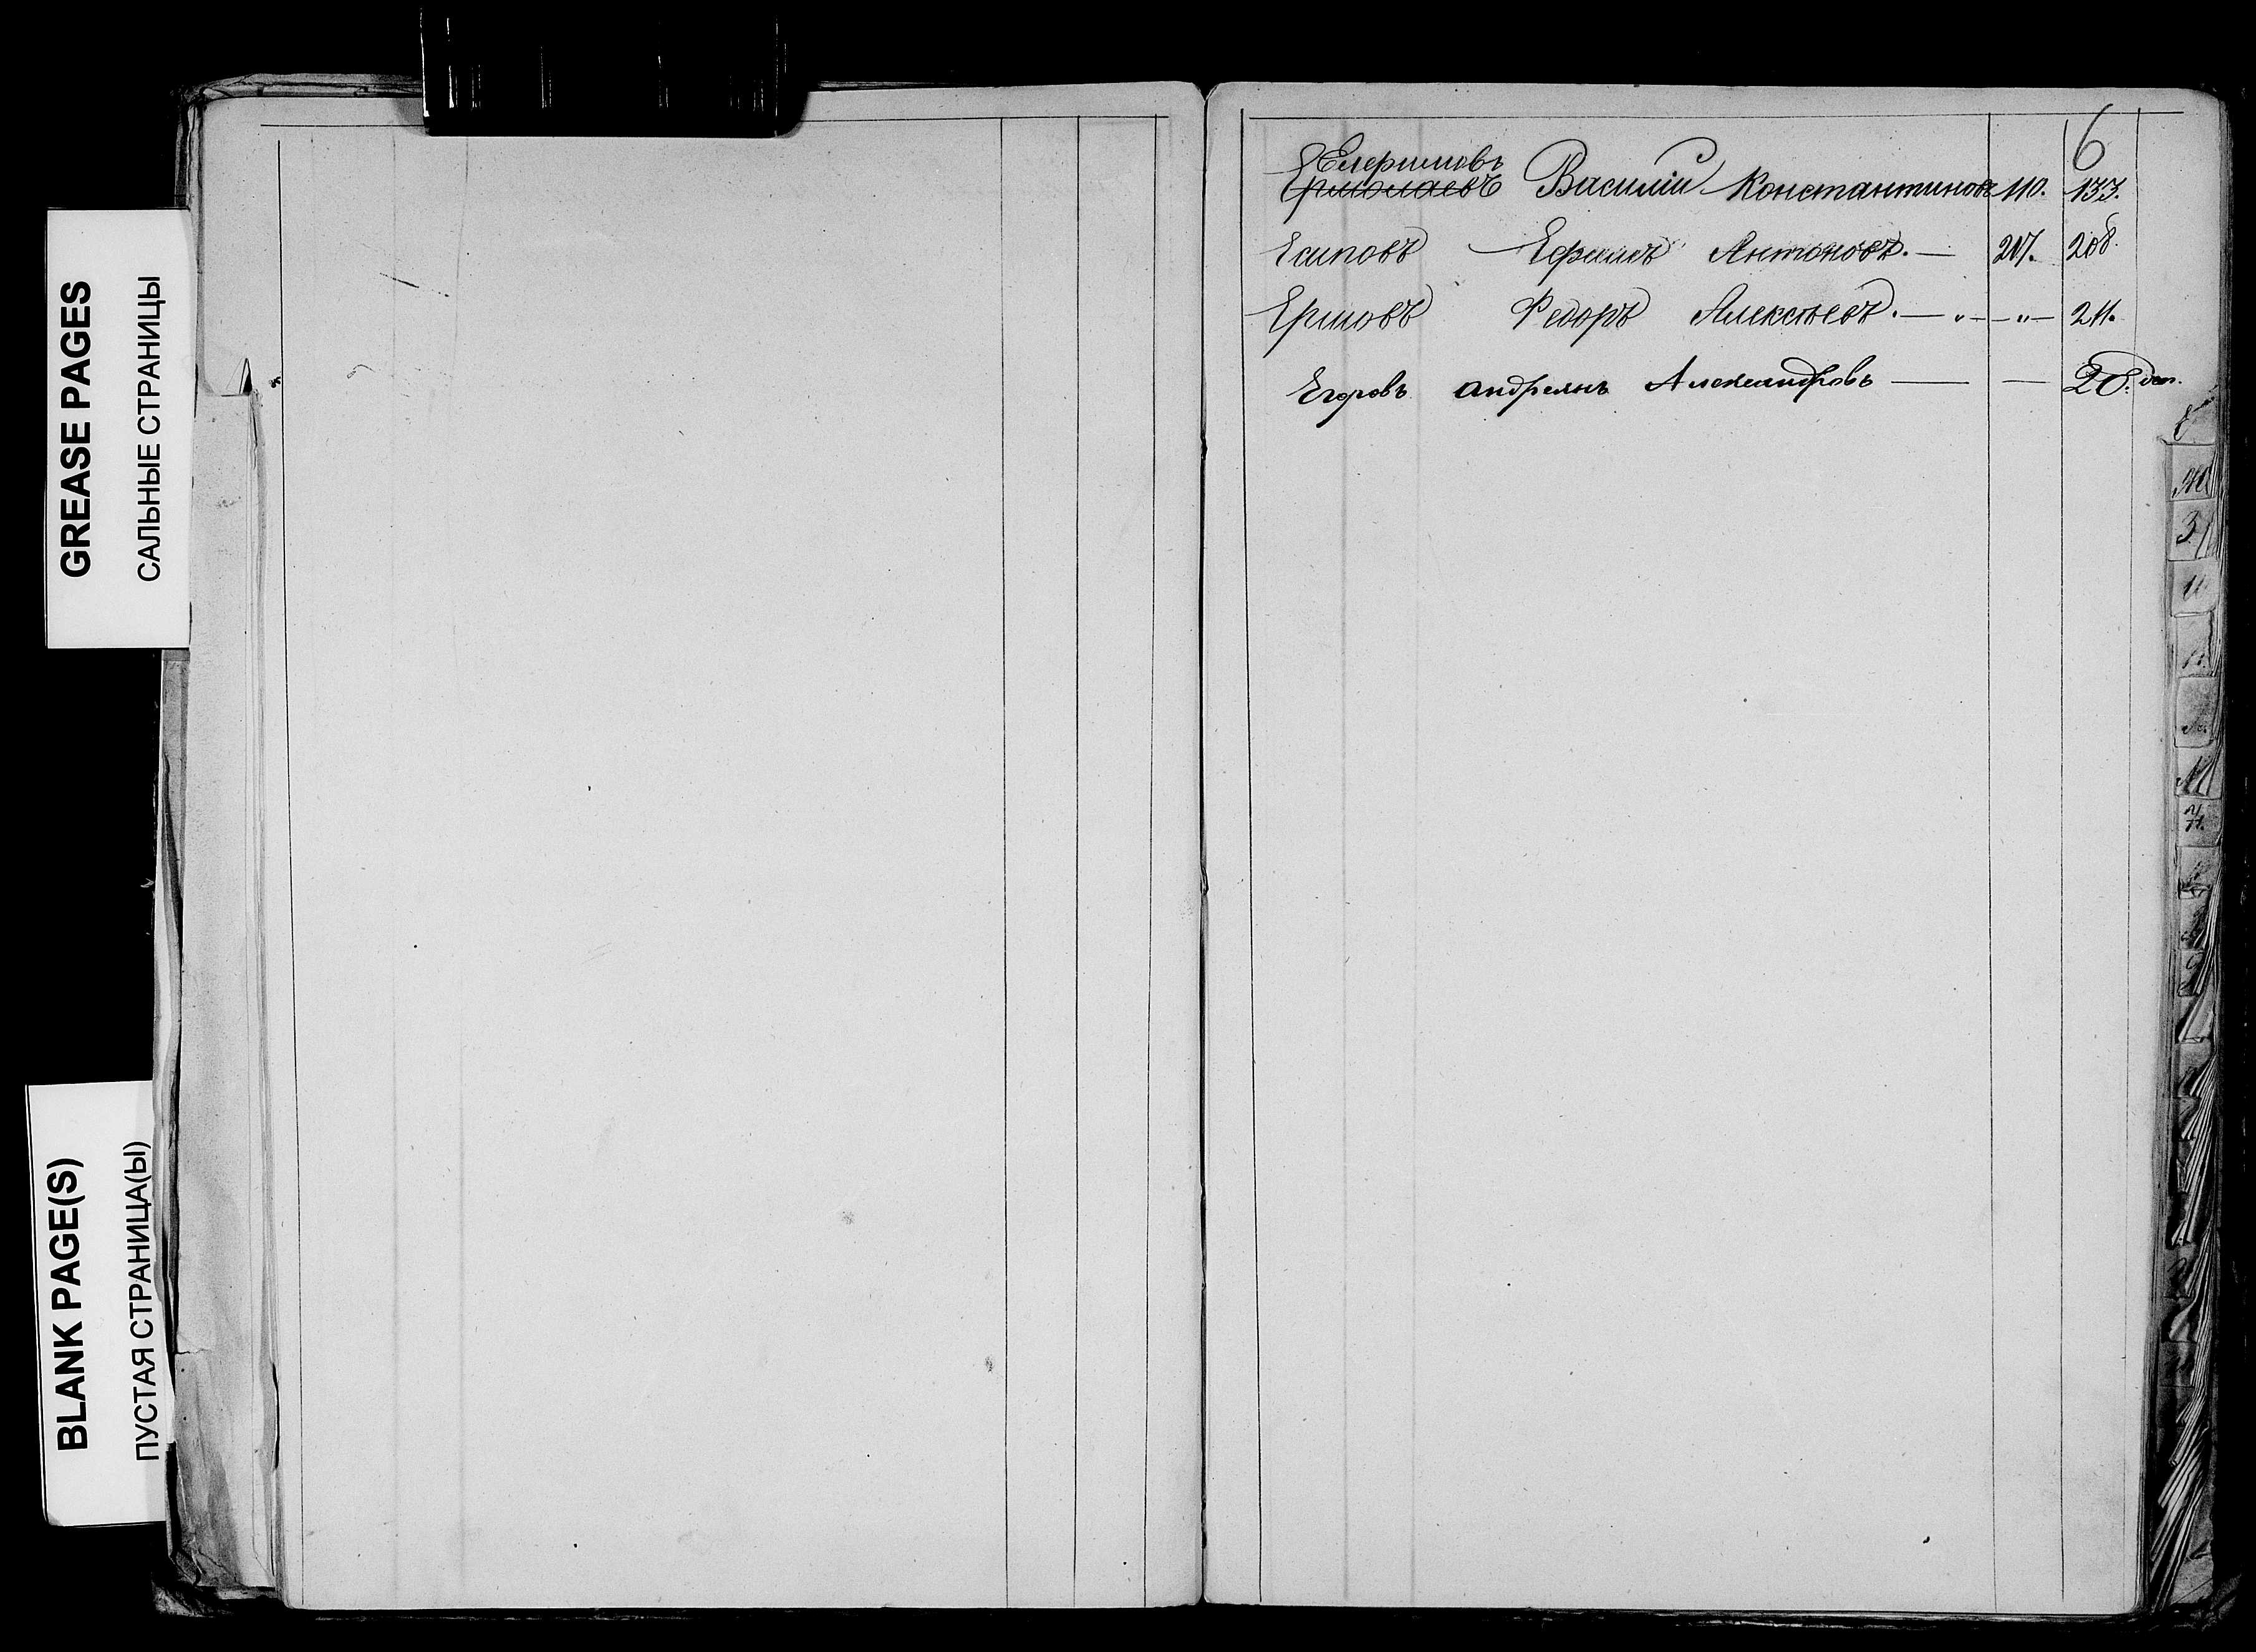 GREASE PAGES
САЛЬНЫЕ СТРАНИЦЫ
BLANK PAGE(S)
ПУСТАЯ СТРАНИЦА(Ы)
6
Ермолаевъ Василій Константиновъ 110. 133.
Есиповъ Ефимъ Антоновъ. — 207. 208.
Ершовъ Федоръ Алексѣевъ. — „ — „ — 211.
Егоровъ Андреянъ Александровъ — — 20. доп.
Ж
З
И
М
Н